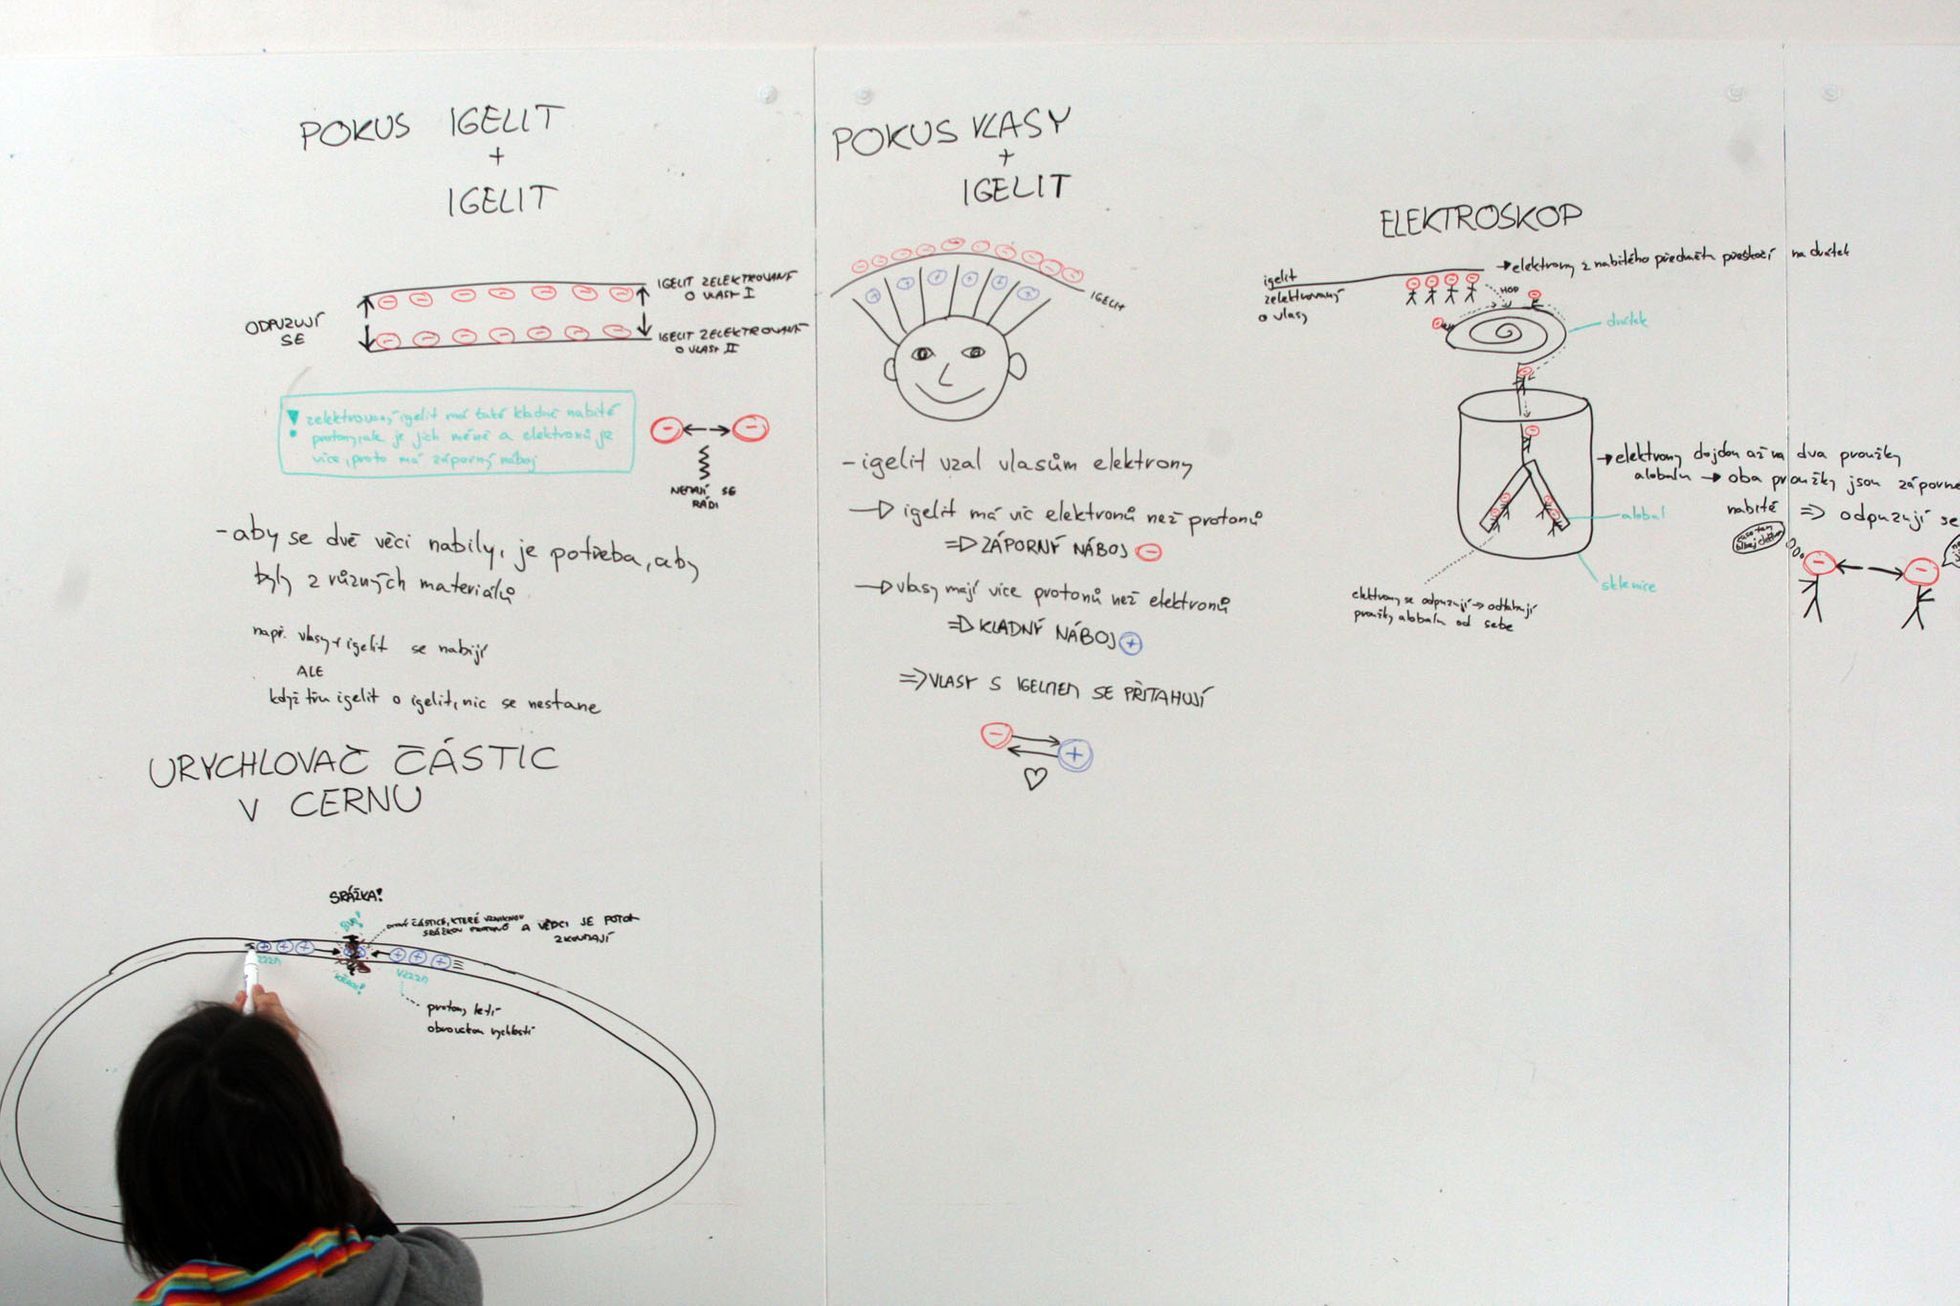 POKUS IGELIT
+
IGELIT
IGELIT ZELEKTROVANÝ
O VLASY I
ODPUZUJÍ
SE
IGELIT ZELEKTROVANÝ
O VLASY II
zelektrovaný igelit má také kladně nabité
protony, ale je jich méně a elektronů je
více, proto má záporný náboj
- -
NEMAJÍ SE
RÁDI
- aby se dvě věci nabily, je potřeba, aby
byly z různých materiálů
např. vlasy + igelit se nabijí
ALE
když třu igelit o igelit, nic se nestane
URYCHLOVAČ ČÁSTIC
V CERNU
SRÁŽKA!
ČÁSTICE, KTERÉ VZNIKNOU
SRÁŽKOU PROTONŮ A VĚDCI JE POTOM
ZKOUMAJÍ
VZZN
protony letí
obrovskou rychlostí
POKUS VLASY
+
IGELIT
IGELIT
- igelit vzal vlasům elektrony
→ igelit má víc elektronů než protonů
⇒ ZÁPORNÝ NÁBOJ -
→ vlasy mají více protonů než elektronů
⇒ KLADNÝ NÁBOJ +
⇒ VLASY S IGELITEM SE PŘITAHUJÍ
- +
ELEKTROSKOP
→ elektrony z nabitého předmětu přeskočí na drátek
igelit
zelektrovaný
o vlasy
HOP
drátek
→ elektrony dojdou až na dva proužky
alobalu → oba proužky jsou záporně
nabité ⇒ odpuzují se
alobal
sklenice
elektrony se odpuzují → odtahují
proužky alobalu od sebe
- -